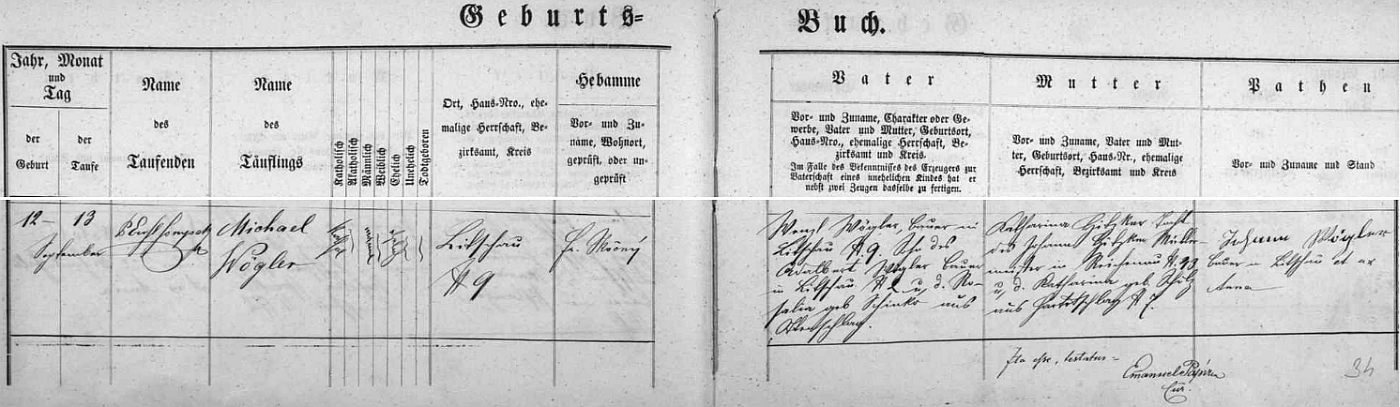 Geburts=
Buch.
Jahr, Monat
und
Tag
der
Geburt
der
Taufe
Name
des
Taufenden
Name
des
Täuflings
Katholisch
Akatholisch
Männlich
Weiblich
Ehelich
Unehelich
Todtgeboren
Ort, Haus-Nro., ehe-
malige Herrschaft, Be-
zirksamt, Kreis
Hebamme
Vor- und Zu-
name, Wohnort,
geprüft, oder un-
geprüft
Vater
Vor- und Zuname, Charakter oder Ge-
werbe, Vater und Mutter, Geburtsort,
Haus-Nro., ehemalige Herrschaft, Be-
zirksamt und Kreis.
Im Falle des Bekenntnisses des Erzeugers zur
Vaterschaft eines unehelichen Kindes hat er
nebst zwei Zeugen dasselbe zu fertigen.
Mutter
Vor- und Zuname, Vater und Mut-
ter, Geburtsort, Haus-Nr., ehemalige
Herrschaft, Bezirksamt und Kreis
Pathen
Vor- und Zuname und Stand
12 13
September
Michael
Wögler
Litschau
N 9
Wenzl Wögler, Bauer in
Litschau N. 9. Sohn des
Adalbert Wögler Bauer
in Litschau N. 2 u. d. Ro-
salia geb. Schinko aus
Katharina
des Johann Müller-
meister in Reichenau N. 93
u. d. Katharina geb.
aus N. 7.
Johann Wögler
Bauer in Litschau et ux
Anna
Ita esse, testatur
Emanuel
Cur.
34